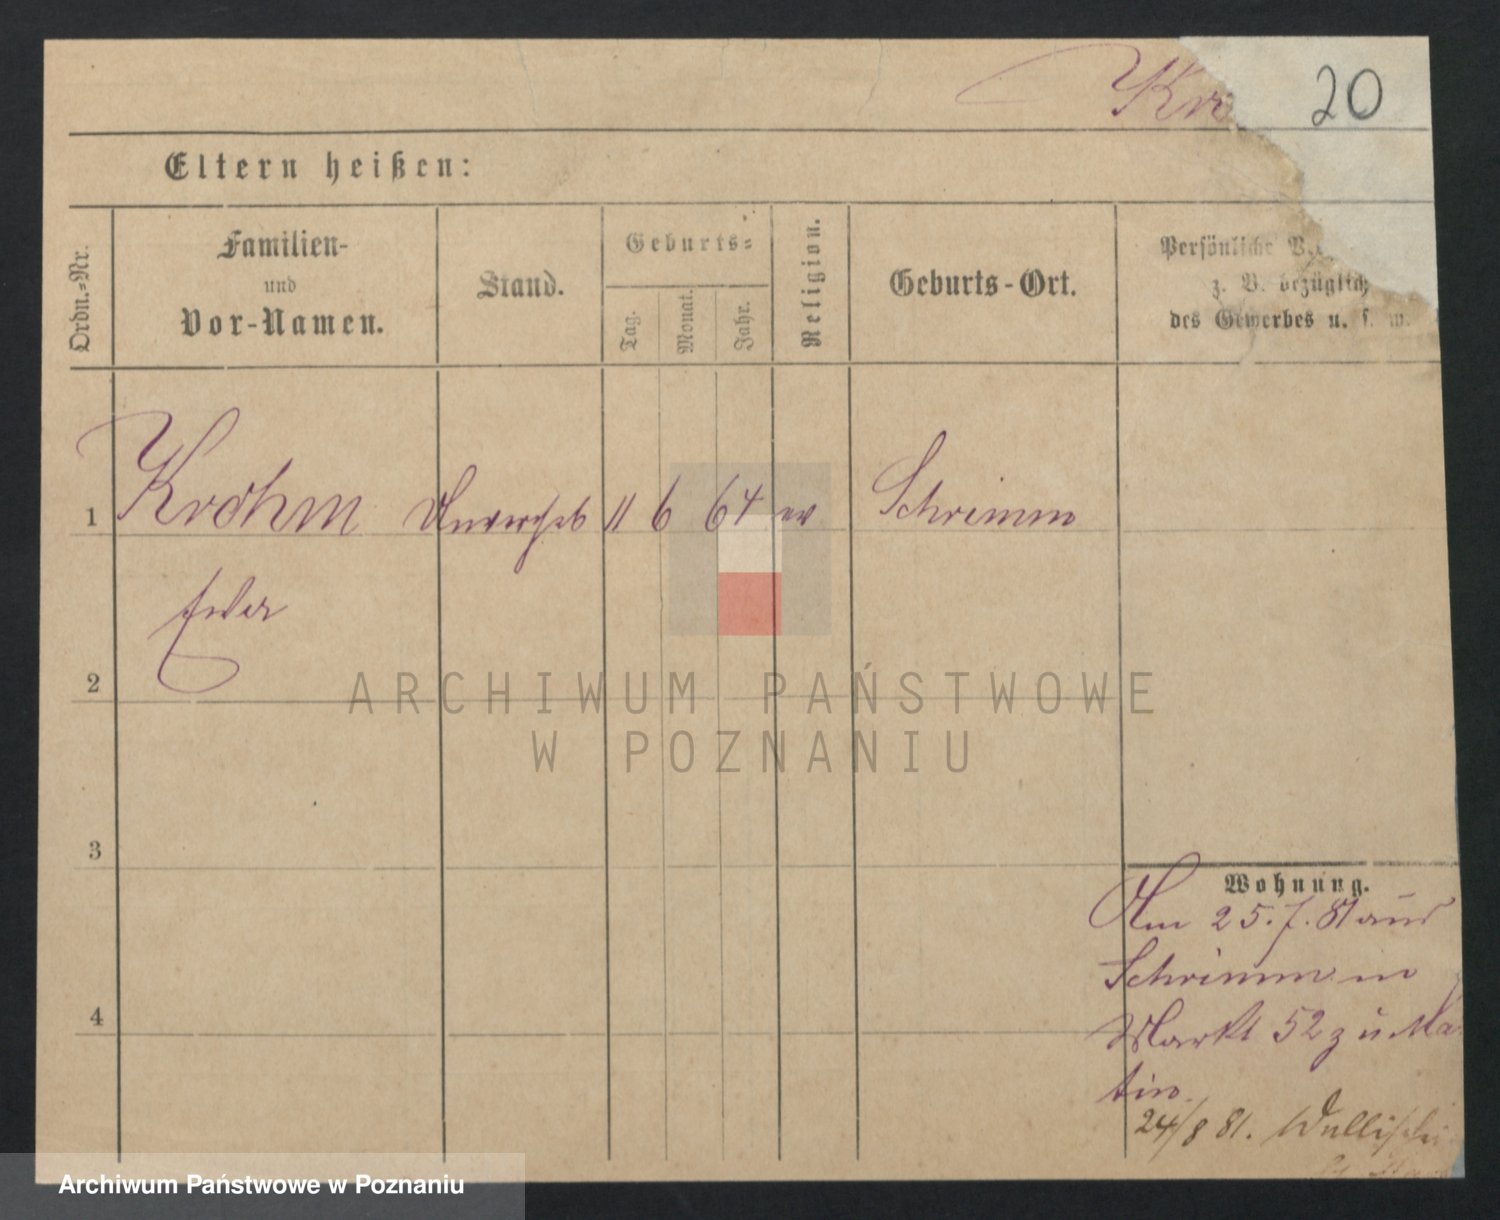 Kr
20
Eltern heißen:
Ordn.-Nr.
Familien-
und
Vor-Namen.
Stand.
Geburts-
Tag.
Monat.
Jahr.
Religion.
Geburts-Ort.
Persönliche
z. B. bezüglich
des Gewerbes u. s. w.
1 Krohm 11 6 64 ev Schrimm
2
3
4
Wohnung.
Am 25.7.81 aus
Schrimm in
Markt 52 zu
24/8 81.
ARCHIWUM PAŃSTWOWE
W POZNANIU
Archiwum Państwowe w Poznaniu